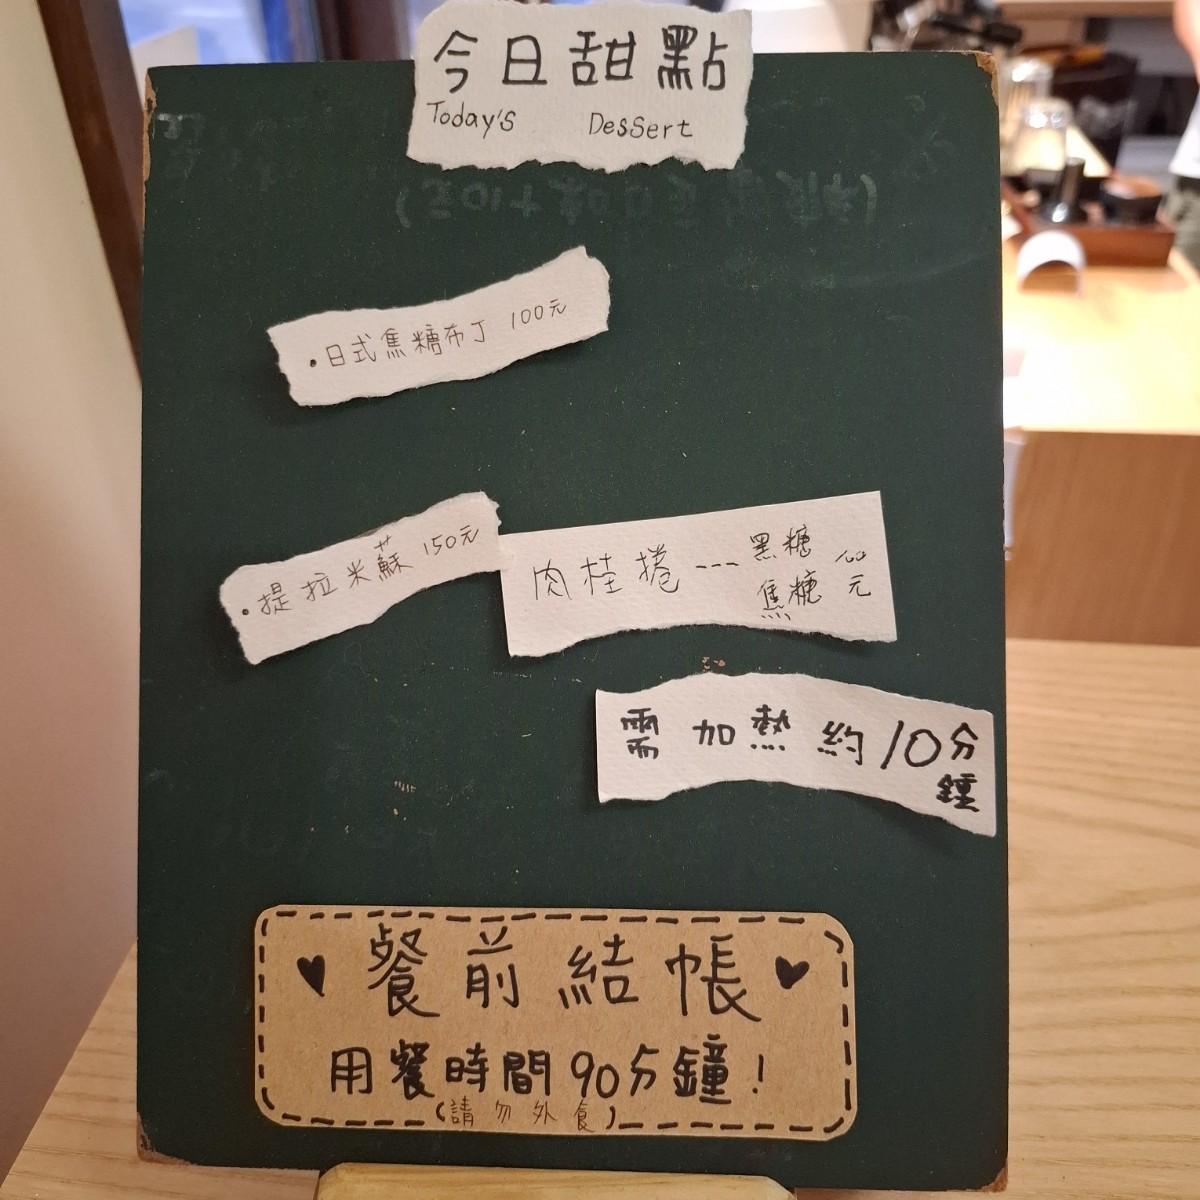 今日甜點
Today's Dessert
•日式焦糖布丁 100元
•提拉米蘇 150元
肉桂捲---黑糖
焦糖
100元
需加熱約10分鐘
♥餐前結帳♥
用餐時間90分鐘!
(請勿外食)